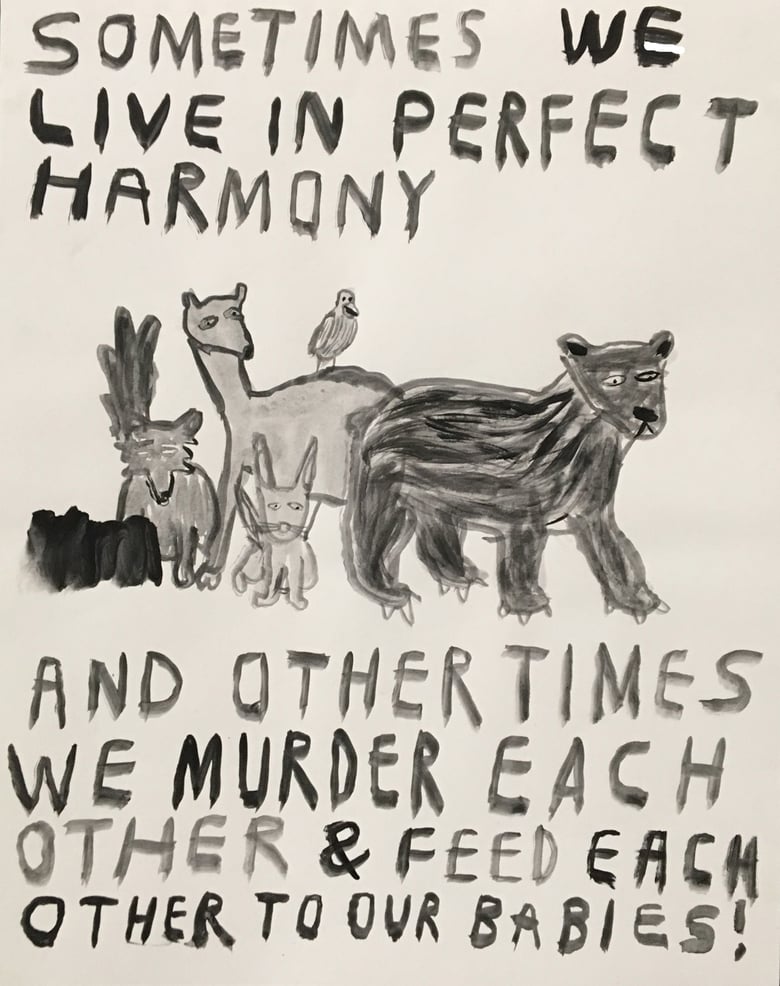 SOMETIMES WE
LIVE IN PERFECT
HARMONY
AND OTHER TIMES
WE MURDER EACH
OTHER & FEED EACH
OTHER TO OUR BABIES!